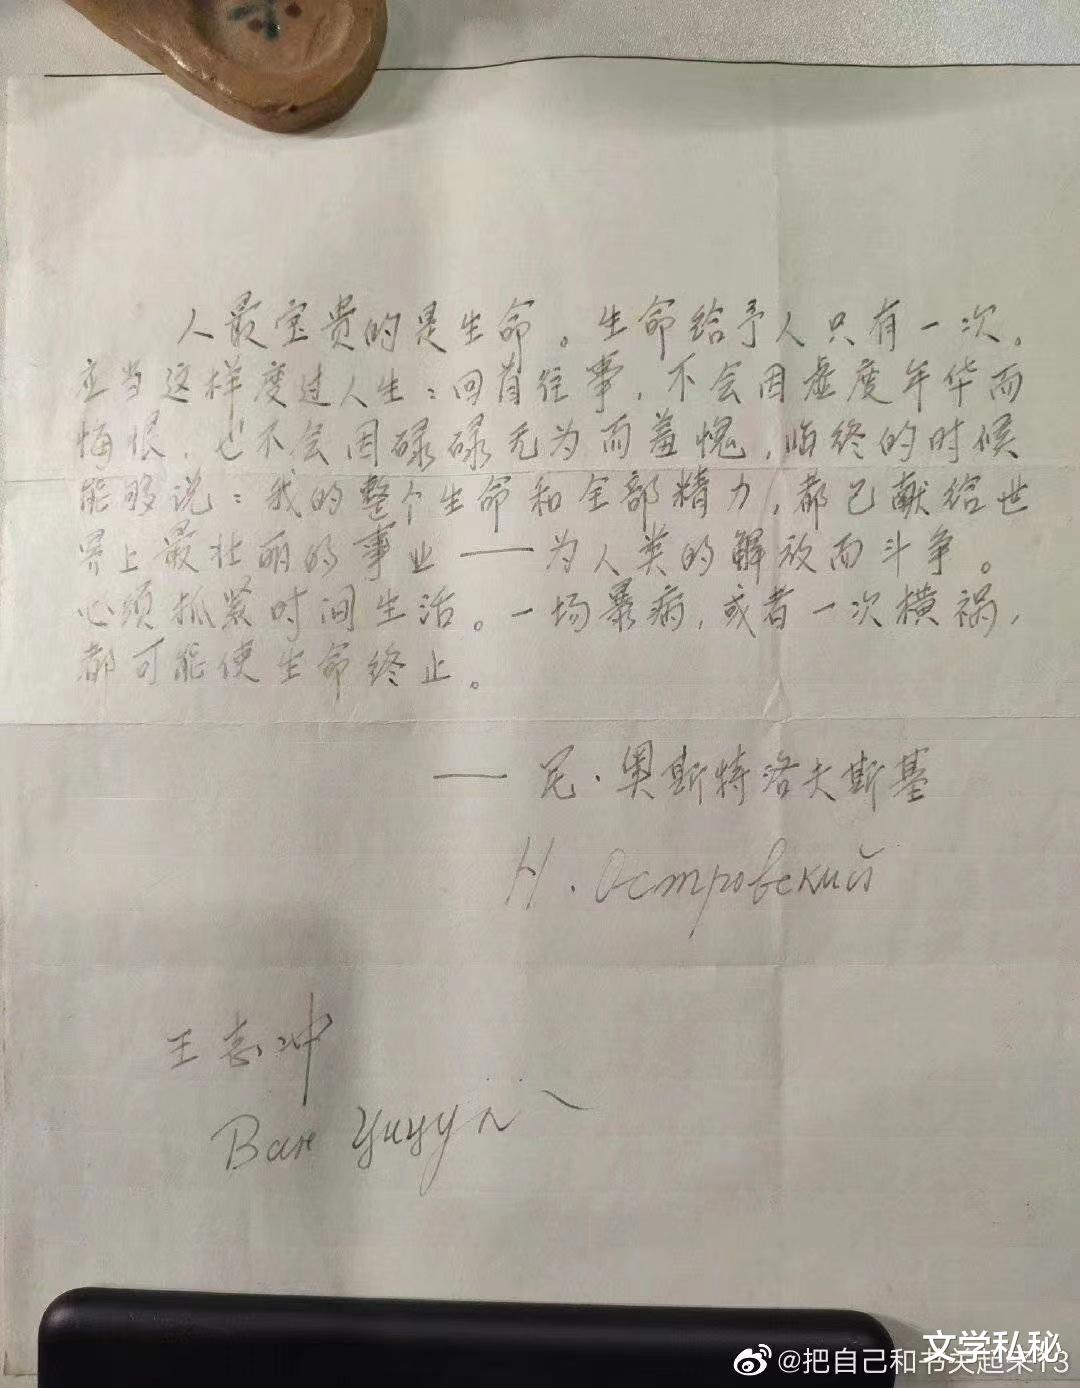 人最宝贵的是生命。生命给予人只有一次。
应当这样度过人生：回首往事，不会因虚度年华而
悔恨，也不会因碌碌无为而羞愧，临终的时候
能够说：我的整个生命和全部精力，都已献给世
界上最壮丽的事业——为人类的解放而斗争。
必须抓紧时间生活。一场暴病，或者一次横祸，
都可能使生命终止。
——尼·奥斯特洛夫斯基
Н. Островский
王志冲
Ван
文学私秘
@把自己和书关起来13